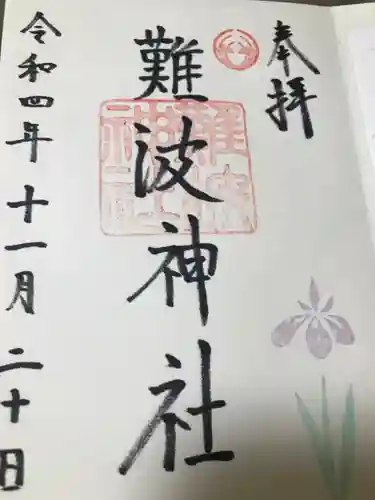 奉拝
難波神社
難波神社
令和四年十一月二十日